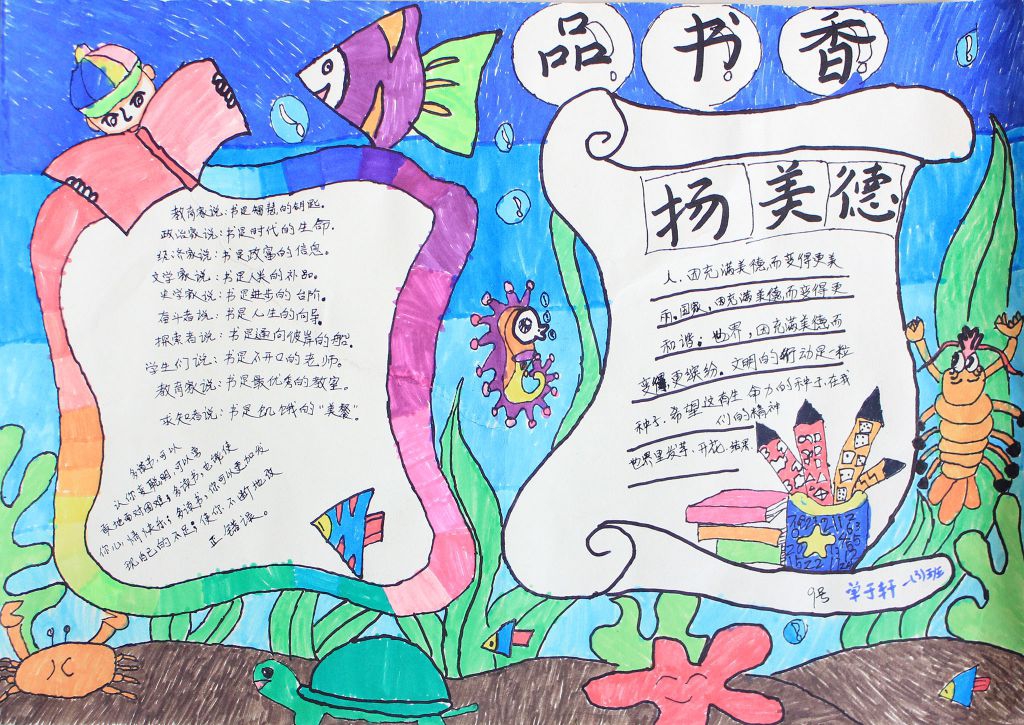 品书香
教育家说:书是智慧的钥匙。
政治家说:书是时代的生命.
经济家说:书是致富的信息。
文学家说:书是人类的补品。
史学家说:书是进步的台阶。
奋斗者说:书是人生的向导。
探索者说:书是通向彼岸的船。
学生们说:书是不开口的老师。
教育家说:书是最优秀的教室。
求知者说:书是饥饿的“美餐”。
多读书,可以
认你变聪明,可以勇
敢地面对困难。多读书,也能使
你心情快乐;多读书,你可以更加发
现自己的不足;使你不断地改
正错误。
扬美德
人,因充满美德而变得更美
丽。国家,因充满美德而变得更
和谐;世界,因充满美德而
变得更缤纷。文明的行动是一粒
种子.希望这有生命力的种子在我
们的精神
世界里发芽、开花、结果.
9号 单子轩 一(3)班